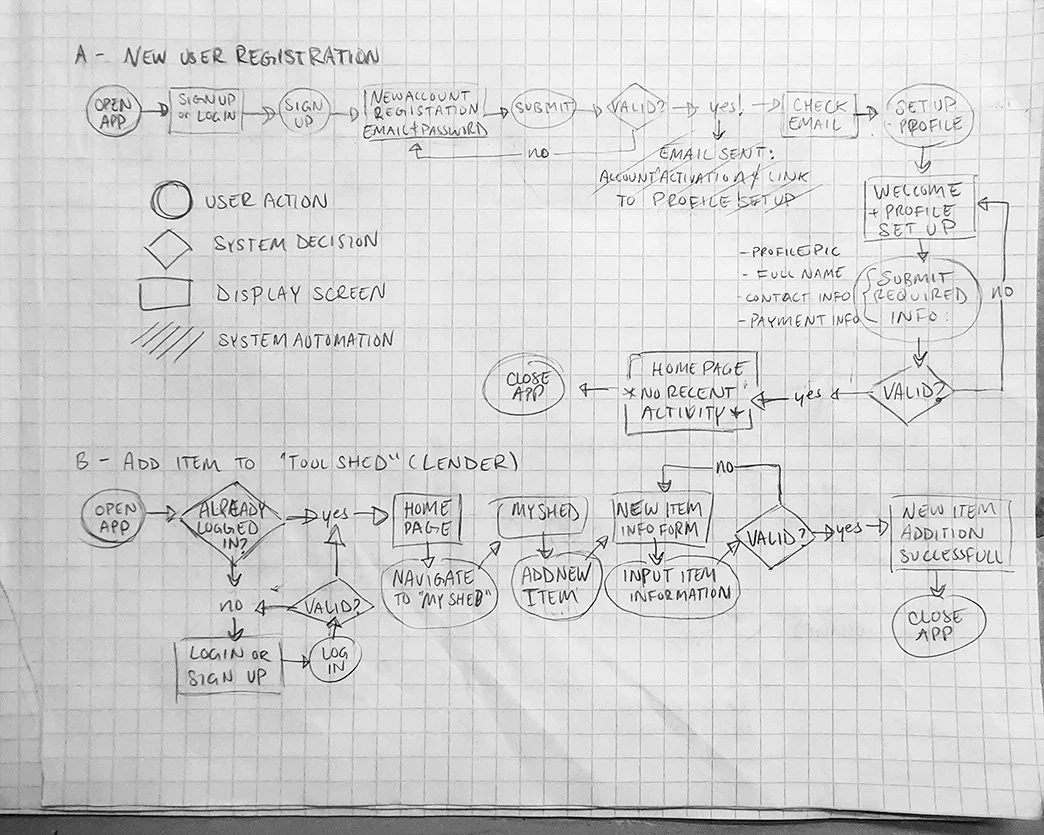 A - NEW USER REGISTRATION
OPEN
APP
SIGN UP
or LOGIN
SIGN
UP
NEW ACCOUNT
REGISTATION
EMAIL + PASSWORD
SUBMIT
VALID?
yes!
CHECK
EMAIL
SET UP
PROFILE
no
EMAIL SENT:
ACCOUNT ACTIVATION + LINK
TO PROFILE SET UP
USER ACTION
SYSTEM DECISION
DISPLAY SCREEN
SYSTEM AUTOMATION
WELCOME
+ PROFILE
SET UP
- PROFILE PIC
- FULL NAME
- CONTACT INFO
- PAYMENT INFO
SUBMIT
REQUIRED
INFO:
no
VALID?
yes
HOME PAGE
*NO RECENT
ACTIVITY*
CLOSE
APP
B - ADD ITEM TO "TOOL SHED" (LENDER)
OPEN
APP
ALREADY
LOGGED
IN?
yes
HOME
PAGE
NAVIGATE
TO "MY SHED"
MY SHED
ADD NEW
ITEM
NEW ITEM
INFO FORM
INPUT ITEM
INFORMATION
no
VALID?
yes
NEW ITEM
ADDITION
SUCCESSFULL
CLOSE
APP
no
VALID?
LOGIN OR
SIGN UP
LOG
IN